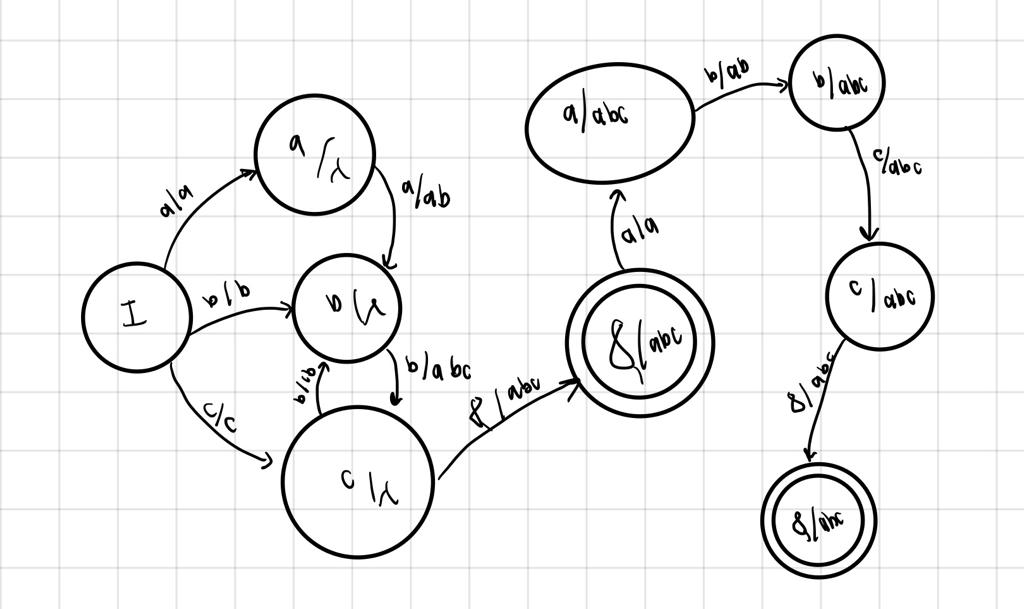 I
a/a
a/λ
a/ab
b/b
b/λ
b/abc
c/c
c/λ
&/abc
&/abc
a/a
a/abc
b/ab
b/abc
c/abc
c/abc
&/abc
&/abc